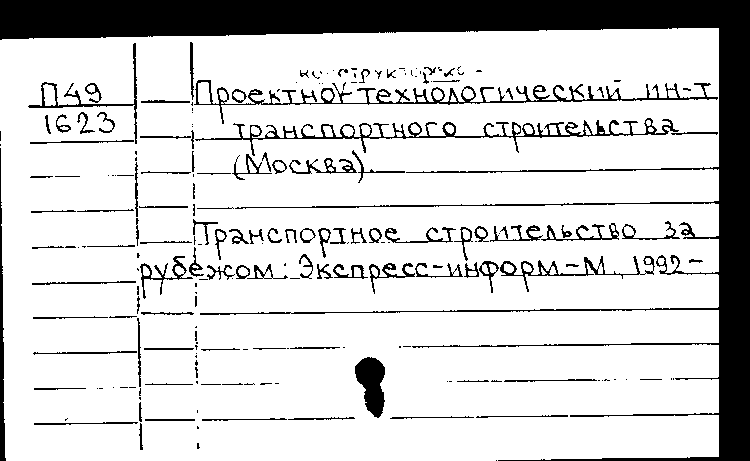 конструкторско-
П49 Проектно-технологический ин-т
1623 транспортного строительства
(Москва).
Транспортное строительство за
рубежом: Экспресс-информ.-М., 1992-